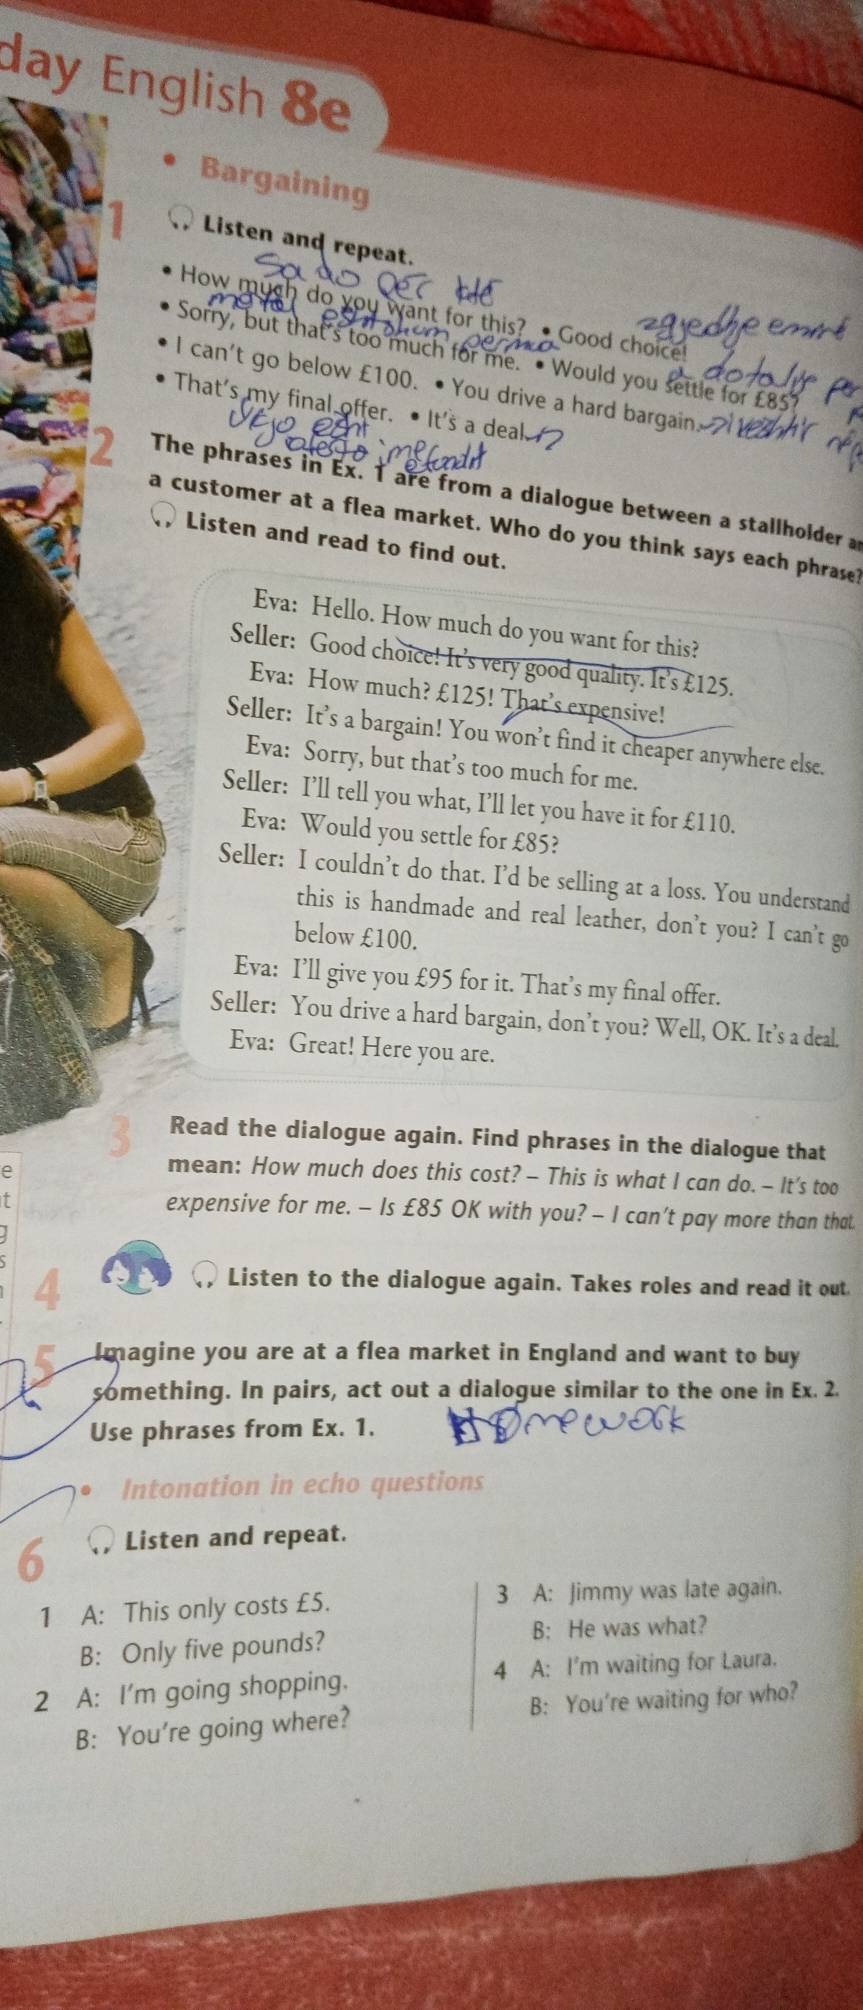 day English 8e
• Bargaining
1 Listen and repeat.
Sa do për këtë
• How much do you want for this? • Good choice!
zgjedhje e mirë
• Sorry, but that's too much for me. • Would you settle for £85?
• I can't go below £100. • You drive a hard bargain.
• That's my final offer. • It's a deal.
2 The phrases in Ex. 1 are from a dialogue between a stallholder an
a customer at a flea market. Who do you think says each phrase?
Listen and read to find out.
Eva: Hello. How much do you want for this?
Seller: Good choice! It's very good quality. It's £125.
Eva: How much? £125! That's expensive!
Seller: It's a bargain! You won't find it cheaper anywhere else.
Eva: Sorry, but that's too much for me.
Seller: I'll tell you what, I'll let you have it for £110.
Eva: Would you settle for £85?
Seller: I couldn't do that. I'd be selling at a loss. You understand
this is handmade and real leather, don't you? I can't go
below £100.
Eva: I'll give you £95 for it. That's my final offer.
Seller: You drive a hard bargain, don't you? Well, OK. It's a deal.
Eva: Great! Here you are.
3 Read the dialogue again. Find phrases in the dialogue that
mean: How much does this cost? – This is what I can do. – It's too
expensive for me. – Is £85 OK with you? – I can't pay more than that.
4 Listen to the dialogue again. Takes roles and read it out.
5 Imagine you are at a flea market in England and want to buy
something. In pairs, act out a dialogue similar to the one in Ex. 2.
Use phrases from Ex. 1. Homework
• Intonation in echo questions
6 Listen and repeat.
1 A: This only costs £5.
B: Only five pounds?
2 A: I'm going shopping.
B: You're going where?
3 A: Jimmy was late again.
B: He was what?
4 A: I'm waiting for Laura.
B: You're waiting for who?